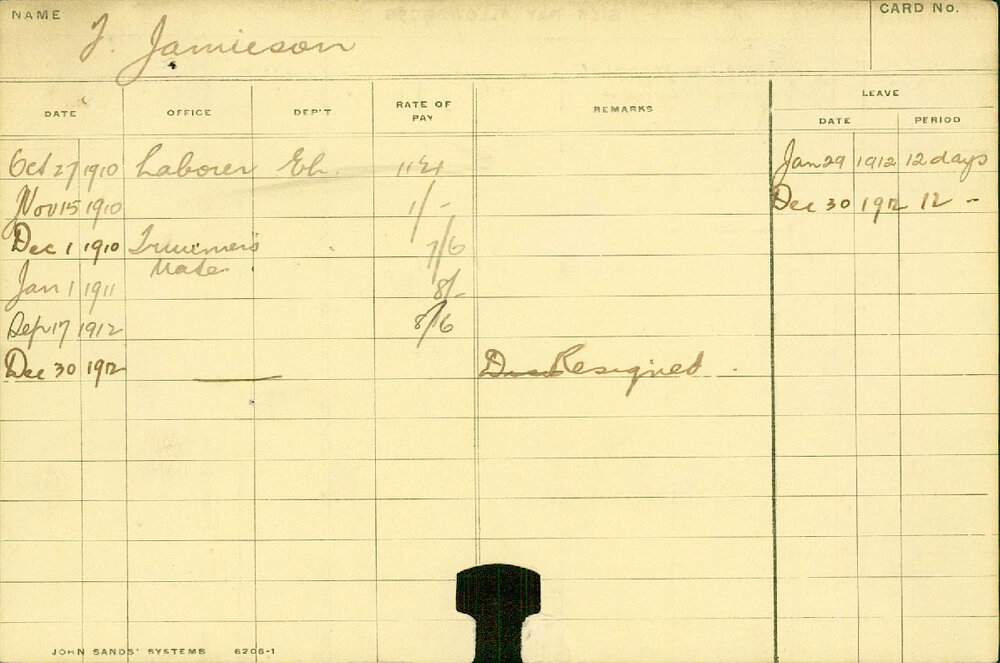 NAME
CARD No.
J. Jamieson
DATE OFFICE DEP'T RATE OF PAY REMARKS LEAVE
DATE PERIOD
Oct 27 1910 Laborer El. Jan 29 1912 12 days
Nov 15 1910 1/- Dec 30 1912 12 -
Dec 1 1910 Trimmer's 7/6
Mate
Jan 1 1911 8/-
Sep 17 1912 8/6
Dec 30 1912 Resigned
JOHN SANDS' SYSTEMS 6206-1